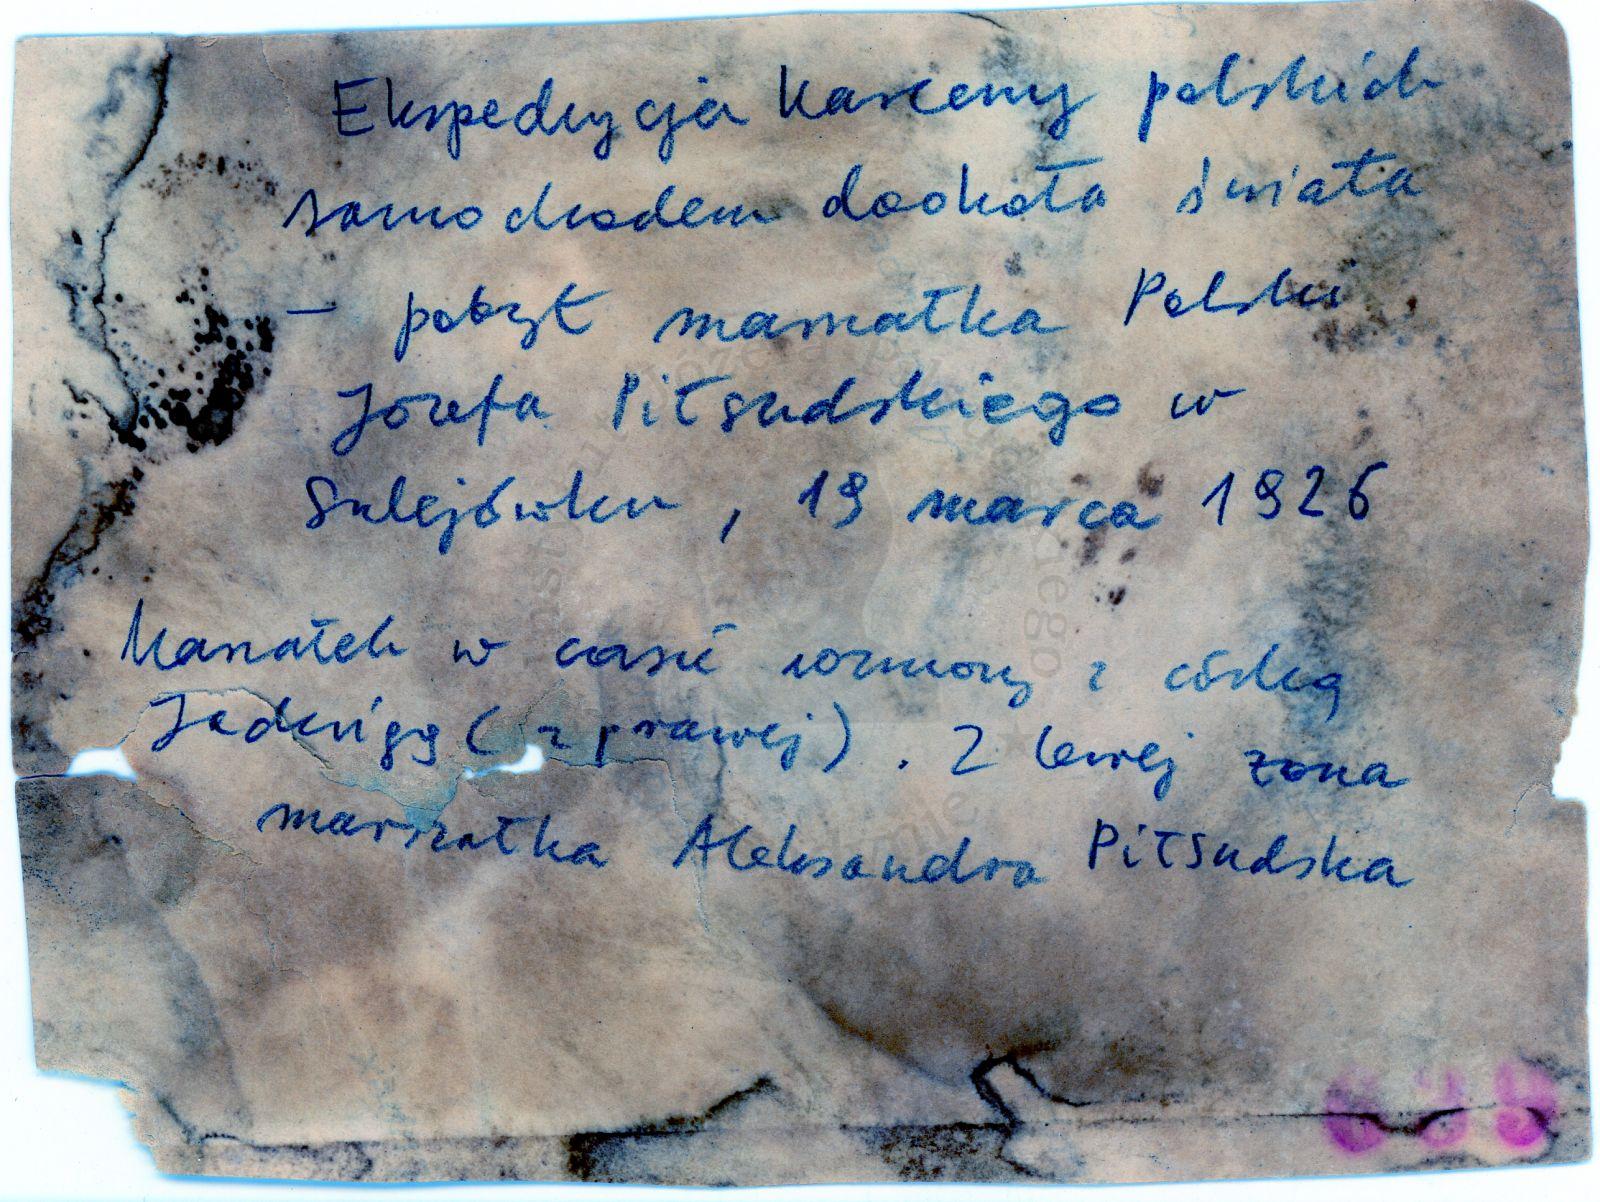 Ekspedycja harcerzy polskich
samochodem dookoła świata
– pobyt marszałka Polski
Józefa Piłsudskiego w
Sulejówku, 19 marca 1926
Marszałek w czasie rozmowy z córką
Jadwigą (z prawej). Z lewej żona
marszałka Aleksandra Piłsudska